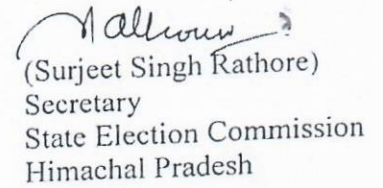 (Surjeet Singh Rathore)
Secretary
State Election Commission
Himachal Pradesh